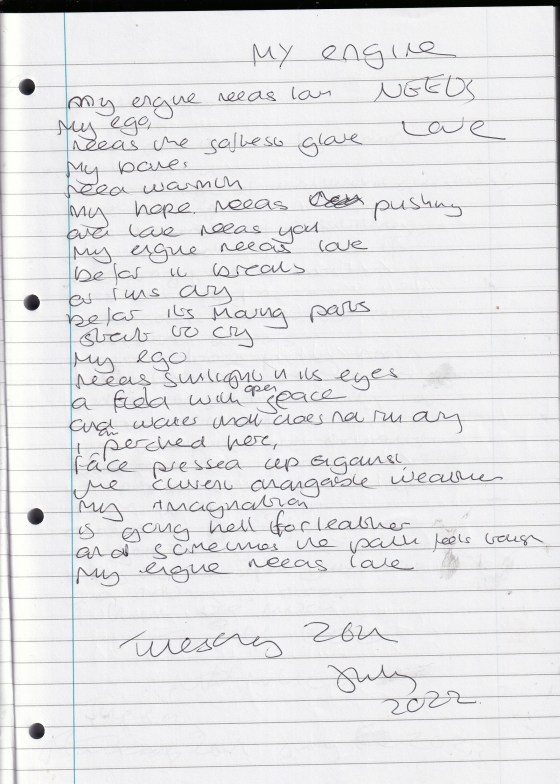 My engine
My engine needs love NEEDS
My ego,
needs the softest glare Love
My bones
need warmth
My hope needs pushing
and love needs you
My engine needs love
before it breaks
or runs dry
before its moving parts
start to cry
My ego
needs sunlight in its eyes
a field with open space
and water that does not run dry
I am perched here,
face pressed up against
the current changeable weather
My imagination
is going hell for leather
and sometimes the path feels tough
My engine needs love
Tuesday 26th
July
2022